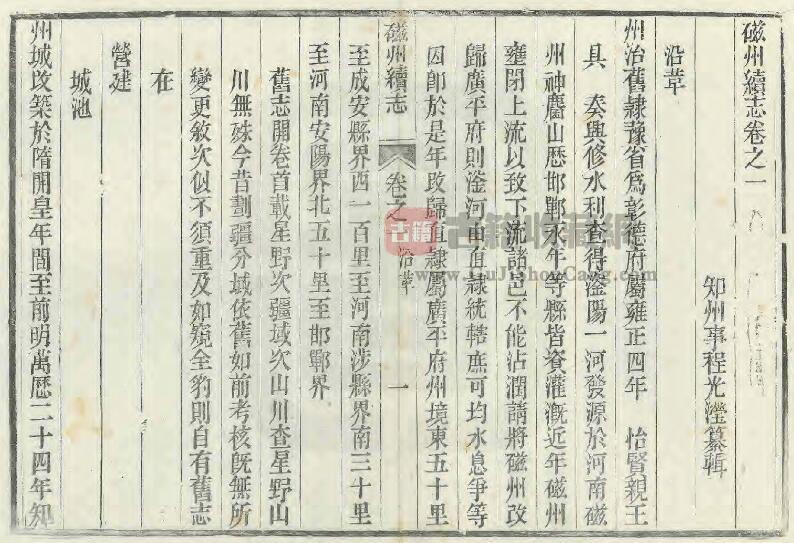 磁州續志卷之一
知州事程光瀅纂輯
沿革
州治舊隸豫省爲彰德府屬雍正四年 怡賢親王
具 奏興修水利查得滏陽一河發源於河南磁
州神麕山歷邯鄲永年等縣皆資灌漑近年磁州
壅閉上流以致下流諸邑不能沾潤請將磁州改
歸廣平府則滏河由直隸統轄庶可均水息爭等
因卽於是年改歸直隸屬廣平府州境東五十里
磁州續志 卷之一 沿革 一
至成安縣界西一百里至河南涉縣界南三十里
至河南安陽界北五十里至邯鄲界
舊志開卷首載星野次疆域次山川查星野山
川無殊今昔劃疆分域依舊如前考核旣無所
變更敘次似不須重及如窺全豹則自有舊志
在
營建
城池
州城改築於隋開皇年間至前明萬歷二十四年知
古籍
古籍收藏網
www.GuJiShouCang.com